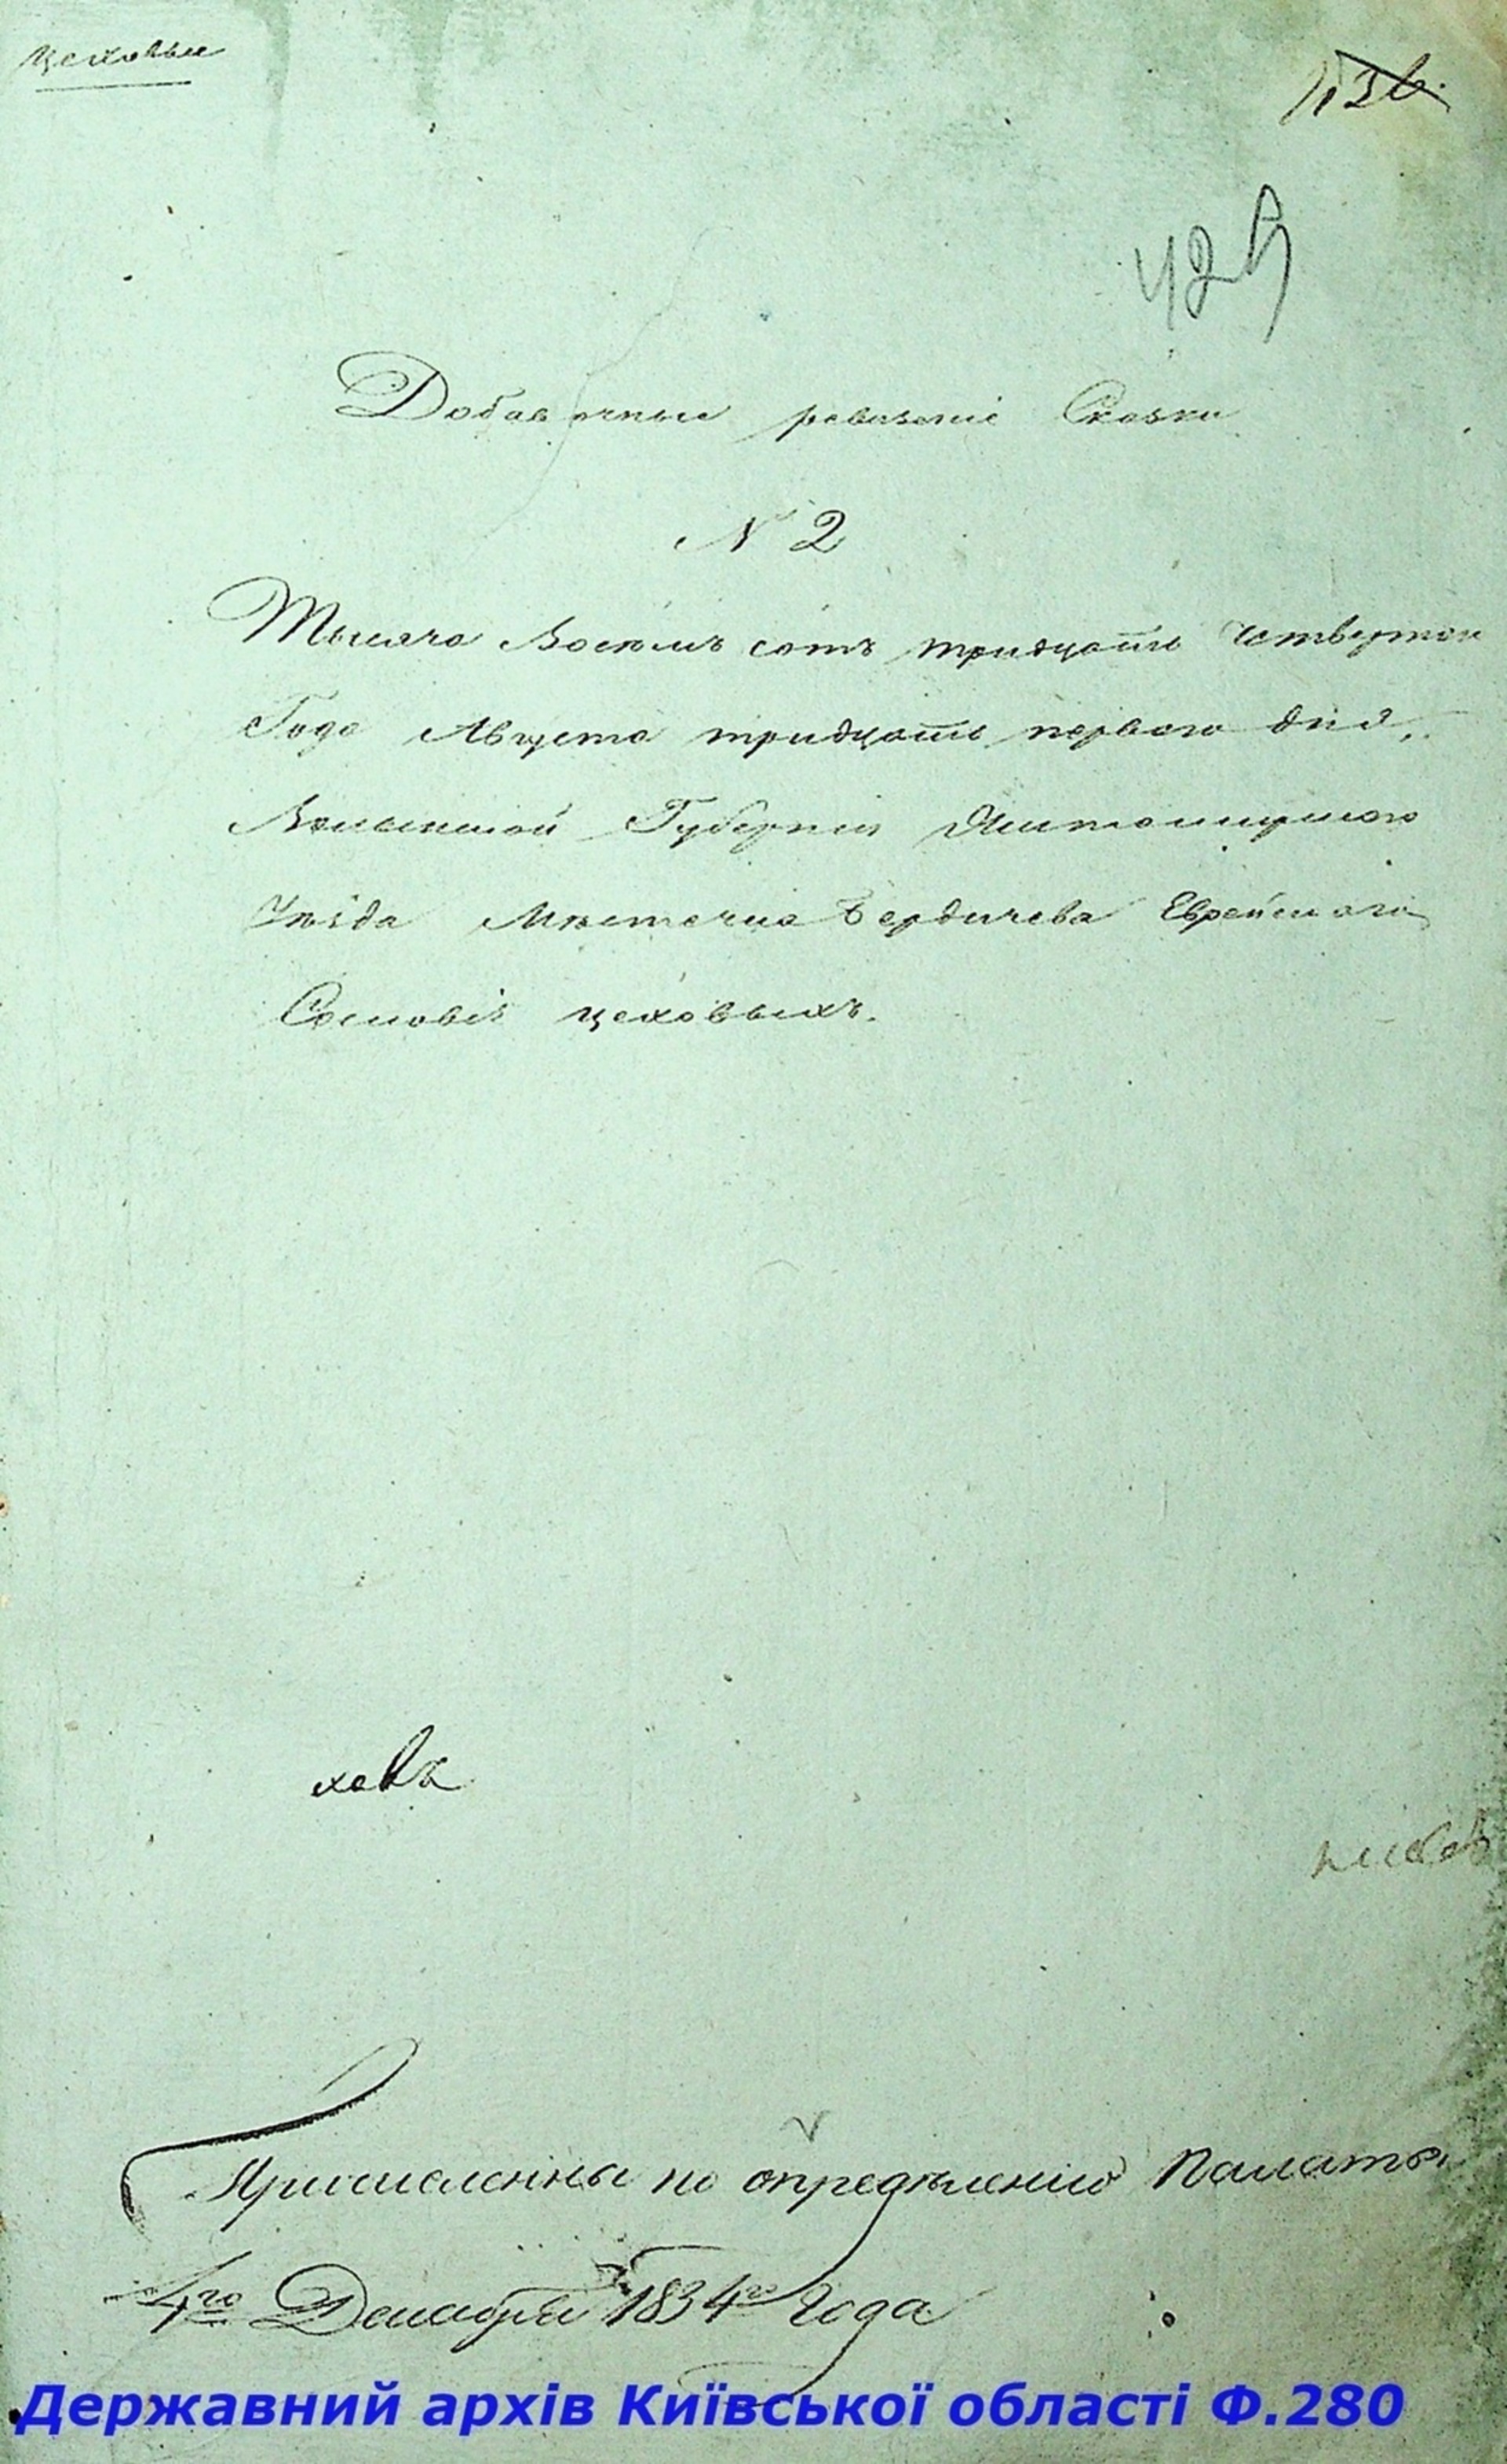 Цеховые
429
Добавочные ревизскіе Сказки
N 2
Тысяча Восемъ сотъ тридцать Четвертаго
Года Августа тридцать перваго дня,
Волынской Губерніи Житомирскаго
Уѣзда Мѣстечка Бердичева Еврейскаго
Сословія цеховыхъ.
Причисленны по опредѣленію Палаты
4го Декабря 1834го года
Державний архів Київської області Ф.280